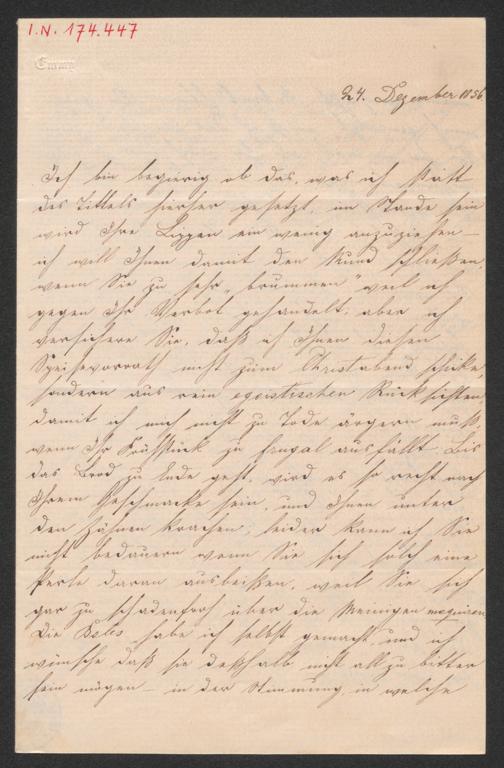 I.N. 174.447
Emmy
24. Dezember 1856.
Ich bin begierig ob das, was ich statt
des Tittels hierher gesetzt, im Stande sein
wird Ihre Lippen ein wenig anzuziehen –
ich will Ihnen damit den Mund schließen,
wenn Sie zu sehr „brummen" weil ich
gegen Ihr Verbot gehandelt; aber ich
versichere Sie, daß ich Ihnen diesen
Speisevorrath nicht zum Christabend schicke,
sondern aus rein egoistischen Rücksichten
damit ich mich nicht zu Tode ärgern muß,
wenn Ihr Frühstück zu frugal ausfällt. Bis
das Brod zu Ende geht, wird es so recht nach
Ihrem Geschmacke sein, und Ihnen unter
den Zähnen krachen; leider kann ich Sie
nicht bedauern wenn Sie sich solch eine
Perle daran ausbeißen, weil Sie sich
gar zu schadenfroh über die Meinigen moquiren.
Die habe ich selbst gemacht, und ich
wünsche daß sie deßhalb nicht allzu bitter
sein mögen – in der Stimmung, in welche